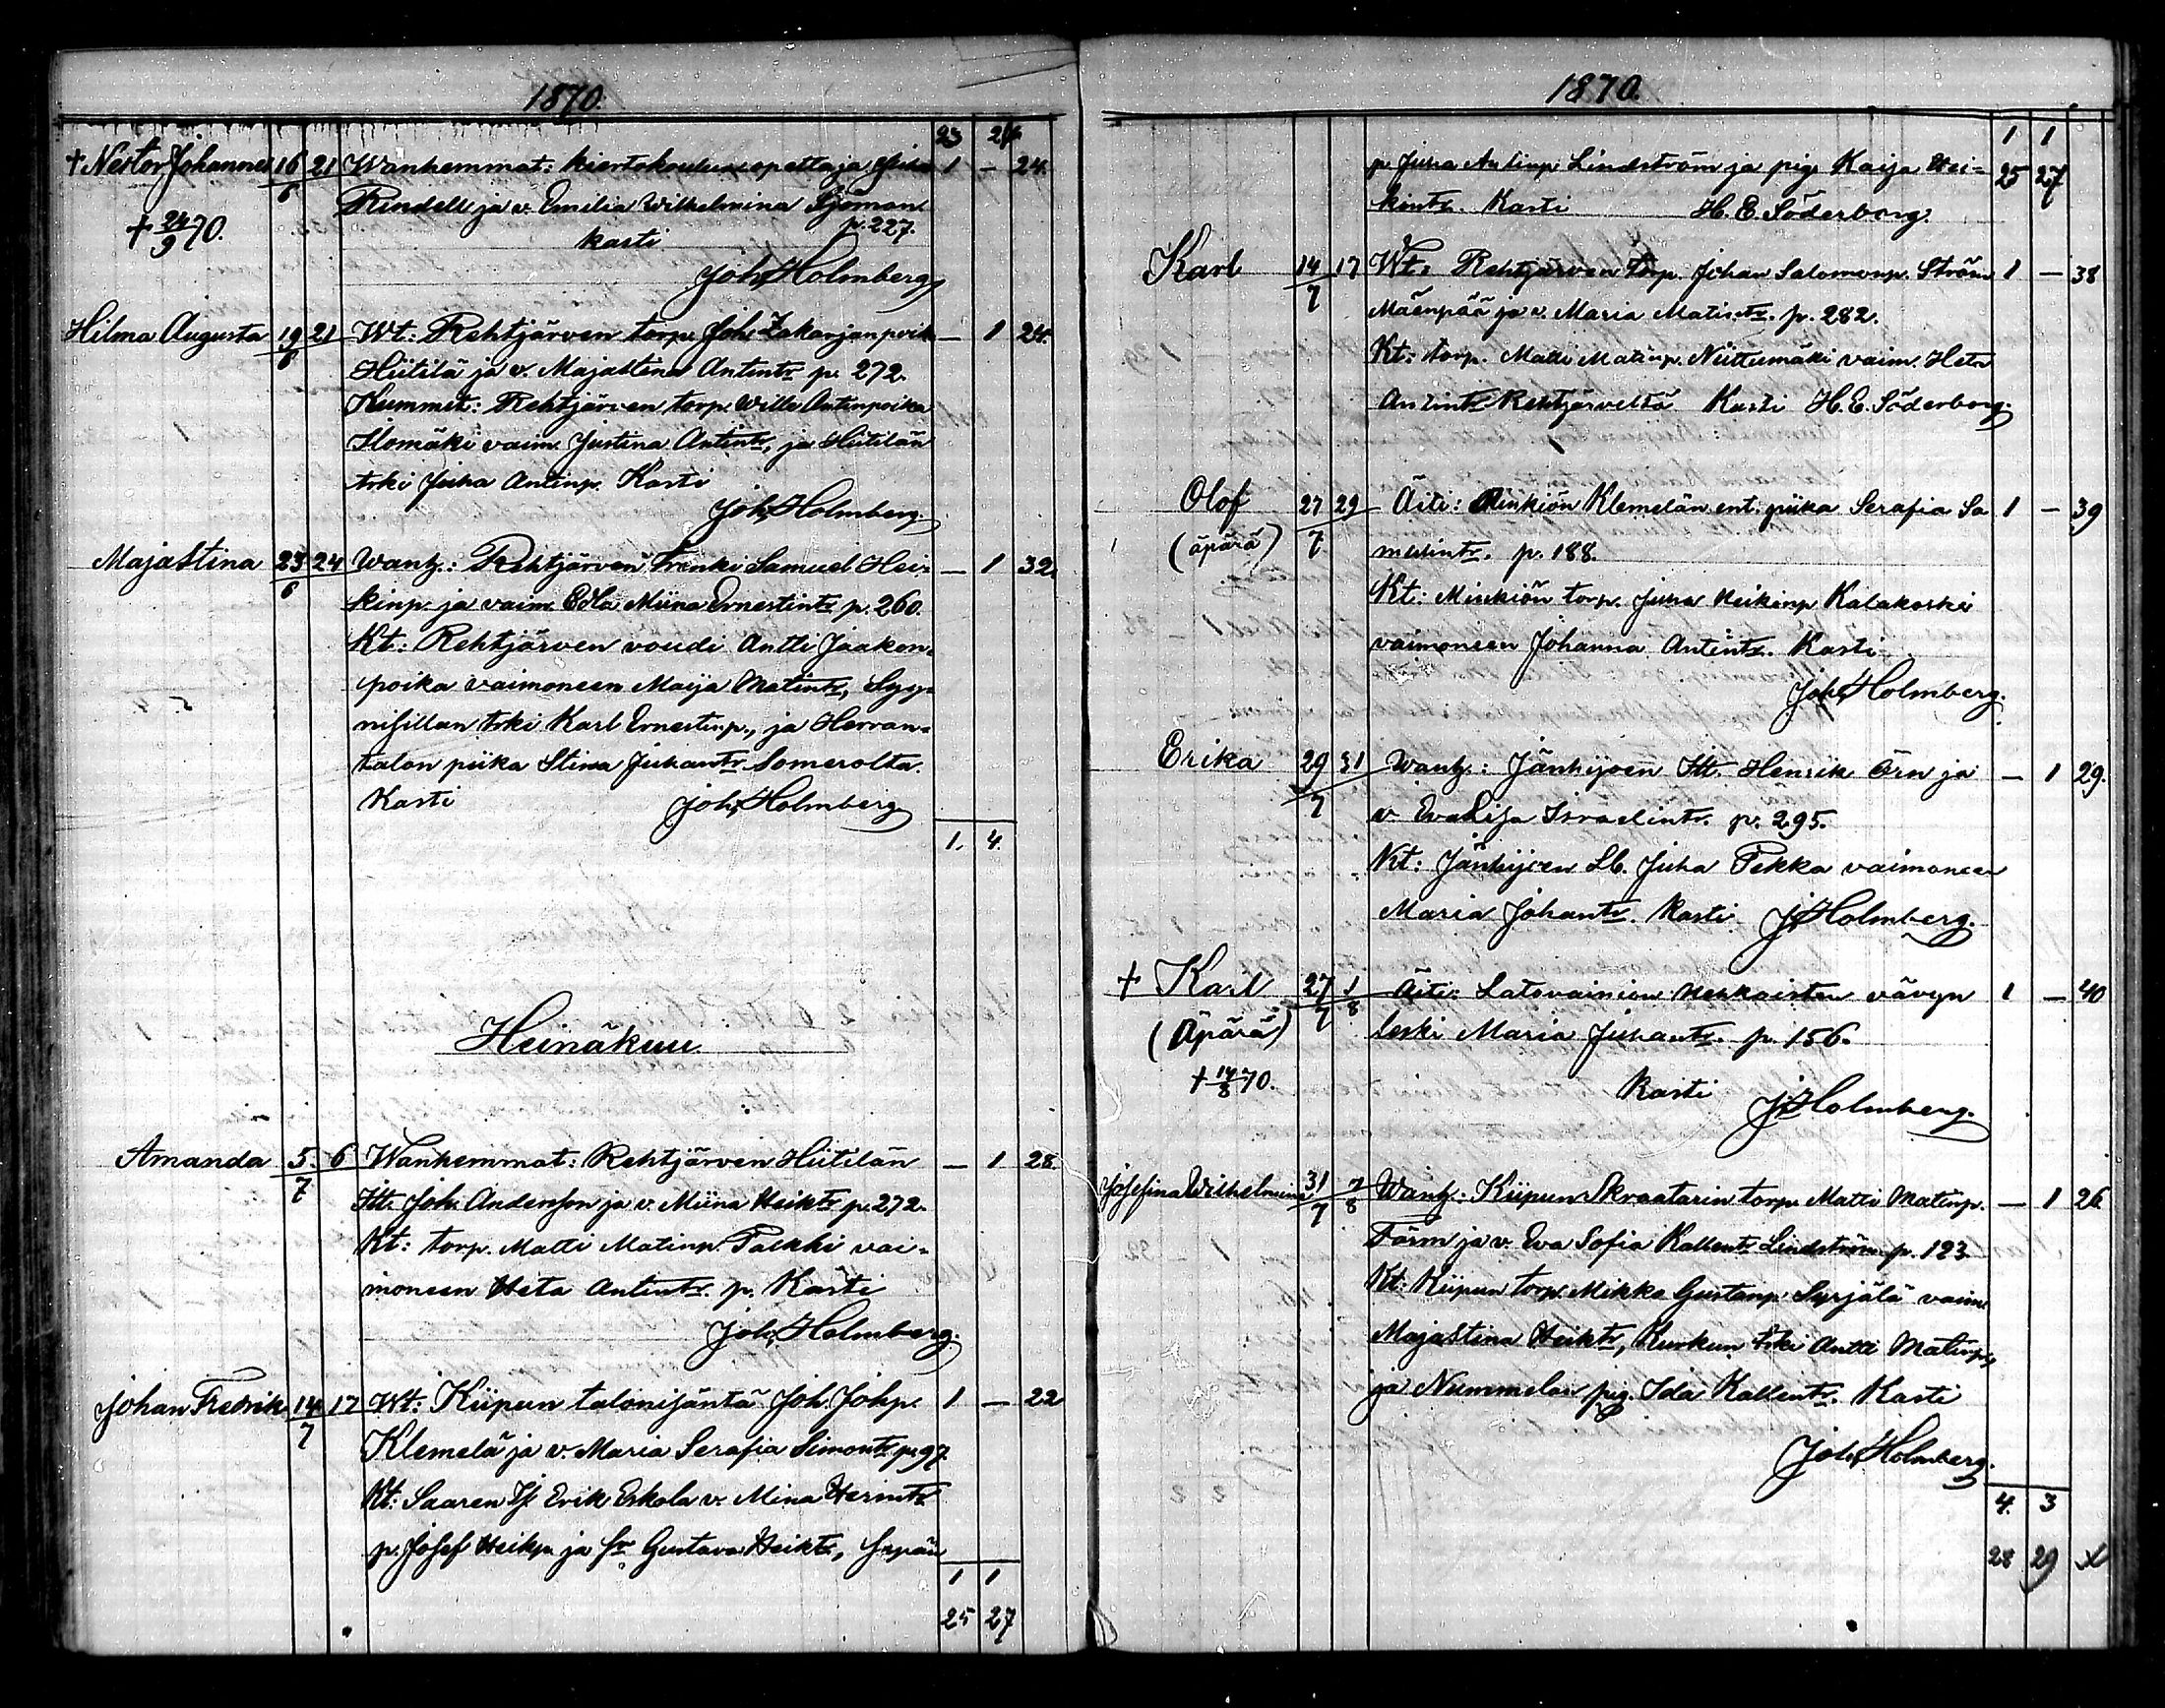 1870.
23 24
+ Nestor Johannes 16/6 21 Wanhemmat: kiertokoulun opettaja Juha 1 – 24.
Rindell ja v. Emilia Wilhelmina Sjöman
+ 24/9 70. kasti p. 227.
Joh. Holmberg
Hilma Augusta 19/6 21 Wt: Rehtjärven torp. Joh. Zakarjanpoik – 1 24.
Hiitilä ja v. Majastina Antintr p. 272.
Kummit: Rehtjärven torp. Wille Antinpoika
Ilomäki vaim. Justina Antintr, ja Hiitilän
trki Juha Antinp. Kasti
Joh. Holmberg.
Majastina 23/6 24 Wanh.: Rehtjärven Trenki Samuel Hei- – 1 32.
kinp. ja vaim. Edla Miina Ernestintr p. 260.
Kt: Rehtjärven voudi Antti Jaakon-
poika vaimoneen Maija Matintr,
trki Karl Ernestinp., ja Herran-
talon piika Stina Juhantr Somerolta.
Kasti Joh. Holmberg
1. 4.
Heinäkuu.
Amanda 5/7 6 Wanhemmat: Rehtjärven Hiitilän – 1 28.
Itt. Joh. Andersson ja v. Miina Heiktr p. 272.
Kt: torp. Matti Matinp. vai-
moneen Heta Antintr. p. Kasti
Joh. Holmberg.
Johan Fredrik 14/7 17 Wt: Kiipun talonisäntä Joh. Johp. 1 – 22
Klemelä ja v. Maria Serafia Simontr p. 97.
Kt: Saaren Erik Eskola v. Mina
p. Josef Heikp. ja Gustava Heiktr,
1 1
25 27
1870.
1 1
p. Juha Antinp. Lindström ja pig. Kaija Hei- 25 27
kintr. Kasti H. E. Söderborg.
Karl 14/7 17 Wt: Rehtjärven Torp. Johan Salomonp. Ström 1 – 38
Mäenpää ja v. Maria Matintr. p. 282.
Kt: torp. Matti Matinp. Niittumäki vaim. Heta
Antintr Rehtjärveltä Kasti H. E. Söderborg.
Olof 27/7 29 Äiti: Minkiön Klemelän ent. piika Serafia Sa 1 – 39
(äpärä) muelintr. p. 188.
Kt: Minkiön torp. Juha Heikinp Kalakoski
vaimoneen Johanna Antintr. Kasti
Joh. Holmberg.
Erika 29/7 31 Wanh.: Jänhijoen Itt. Henrik Örn ja – 1 29.
v. Eva Lisa Israelintr. p. 295.
Kt: Jänhijoen Lb. Juha Pekka vaimoneen
Maria Johantr. Kasti J. Holmberg.
+ Karl 27/7 1/8 Äiti: Latovainion Uehkaisten vävyn 1 – 40
(Äpärä) leski Maria Juhantr. p. 156.
+ 14/8 70. Kasti J. Holmberg.
Josefina Wilhelmina 31/7 7/8 Wanh.: Kiipun Skraatarin torp. Matti Matinp. – 1 26.
Färm ja v. Eva Sofia Kallentr Lindström p. 123
Kt: Kiipun torp. Mikko Gustanp. Syrjälä vaim.
Majastina Heiktr, Kurkun trki Antti Matinp.,
ja Nummelan pig. Ida Kallentr. Kasti
Joh. Holmberg.
4. 3
28 29